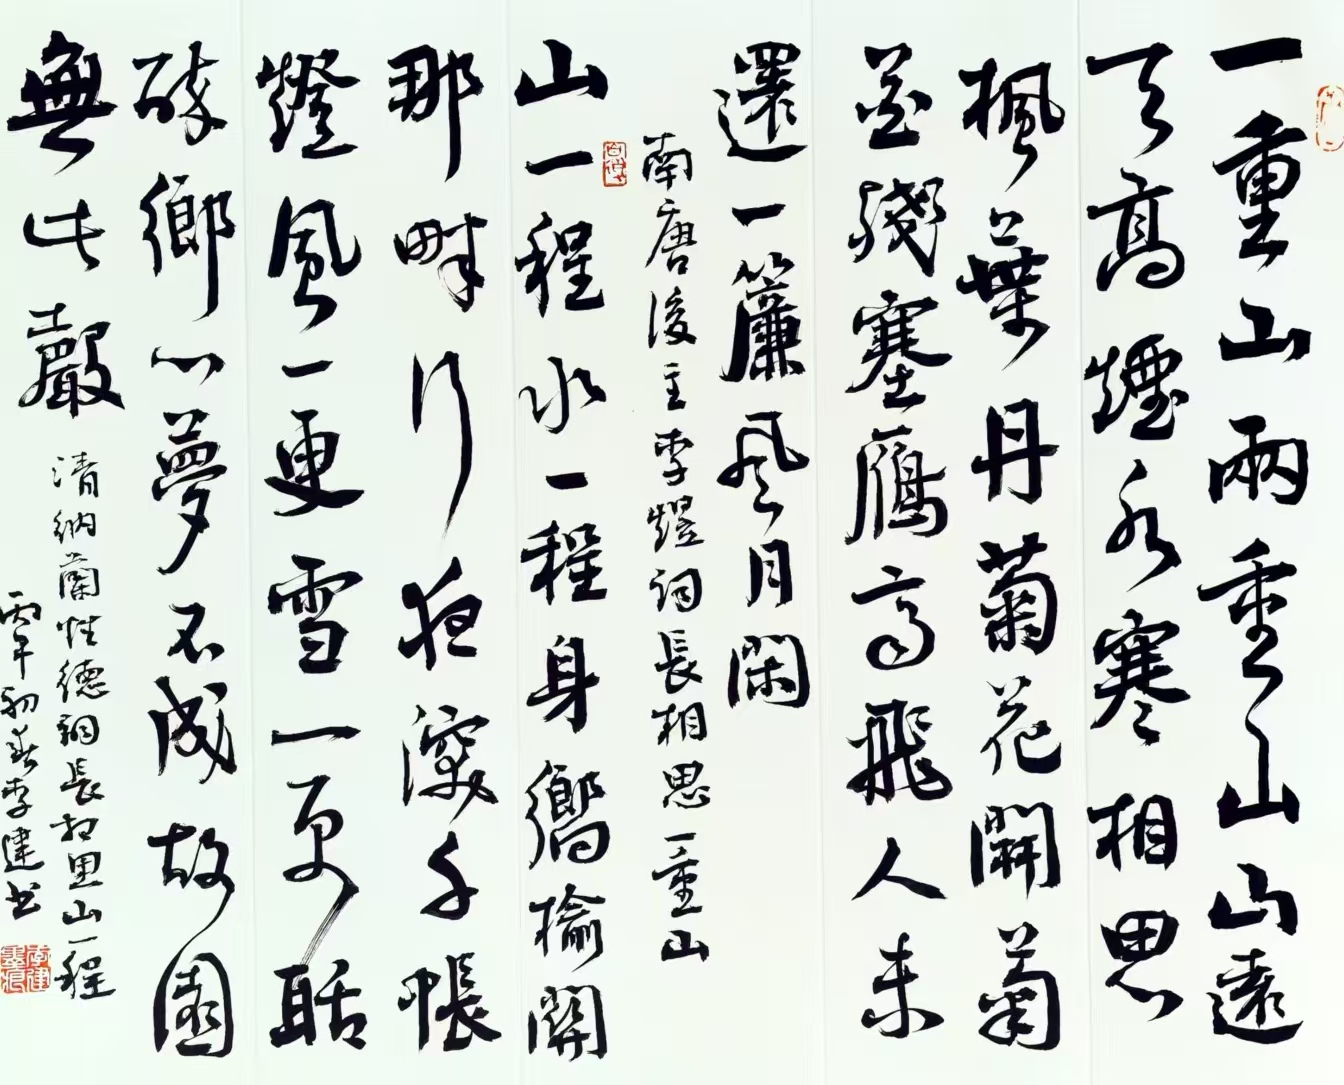 一重山兩重山山遠
天高煙水寒相思
楓葉丹菊花開菊
花殘塞鴈高飛人未
還一簾風月閑
南唐後主李煜詞長相思一重山
山一程水一程身嚮榆關
那畔行夜深千帳
燈風一更雪一更聒
碎鄉心夢不成故園
無此聲
清納蘭性德詞長相思山一程
丙午初春李建書
李建墨痕